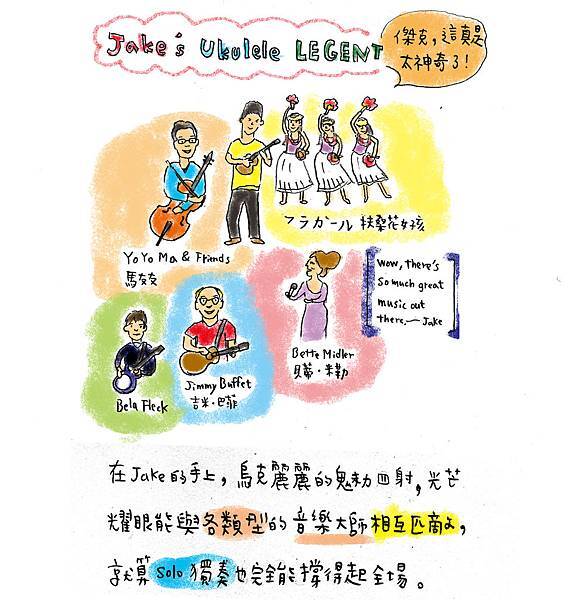 Jake's Ukulele LEGENT
傑克，這真是
太神奇了！
フラガール 扶桑花女孩
YoYo Ma & Friends
馬友友
Wow, there's
so much great
music out
there. — Jake
Bette Midler
貝蒂·米勒
Jimmy Buffet
吉米·巴菲
Bela Fleck
在Jake的手上，烏克麗麗的魅力四射，光芒
耀眼能與各類型的音樂大師相互匹敵，
就算solo獨奏也完全能撐得起全場。